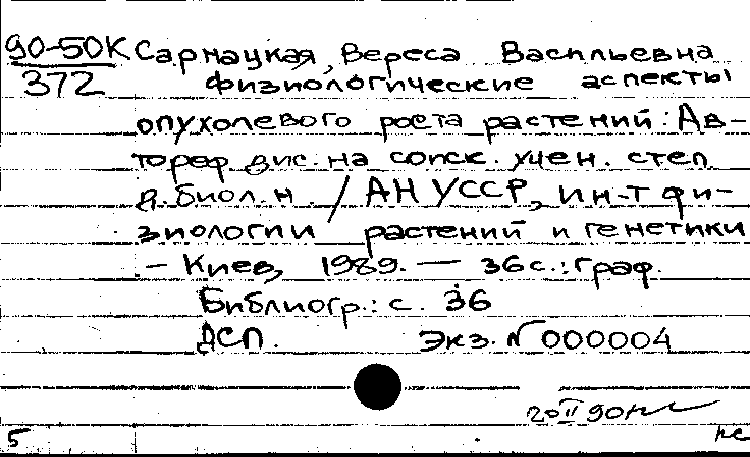 90-50К Сарнацкая, Вереса Васильевна
372 Физиологические аспекты
опухолевого роста растений: Ав-
тореф дис. на соиск. учен. степ.
д. биол. н. / АН УССР, Ин-т фи-
зиологии растений и генетики
- Киев, 1989. — 36 с.: граф.
Библиогр.: с. 36
ДСП. Экз. N 000004
20 II 90
5 нс